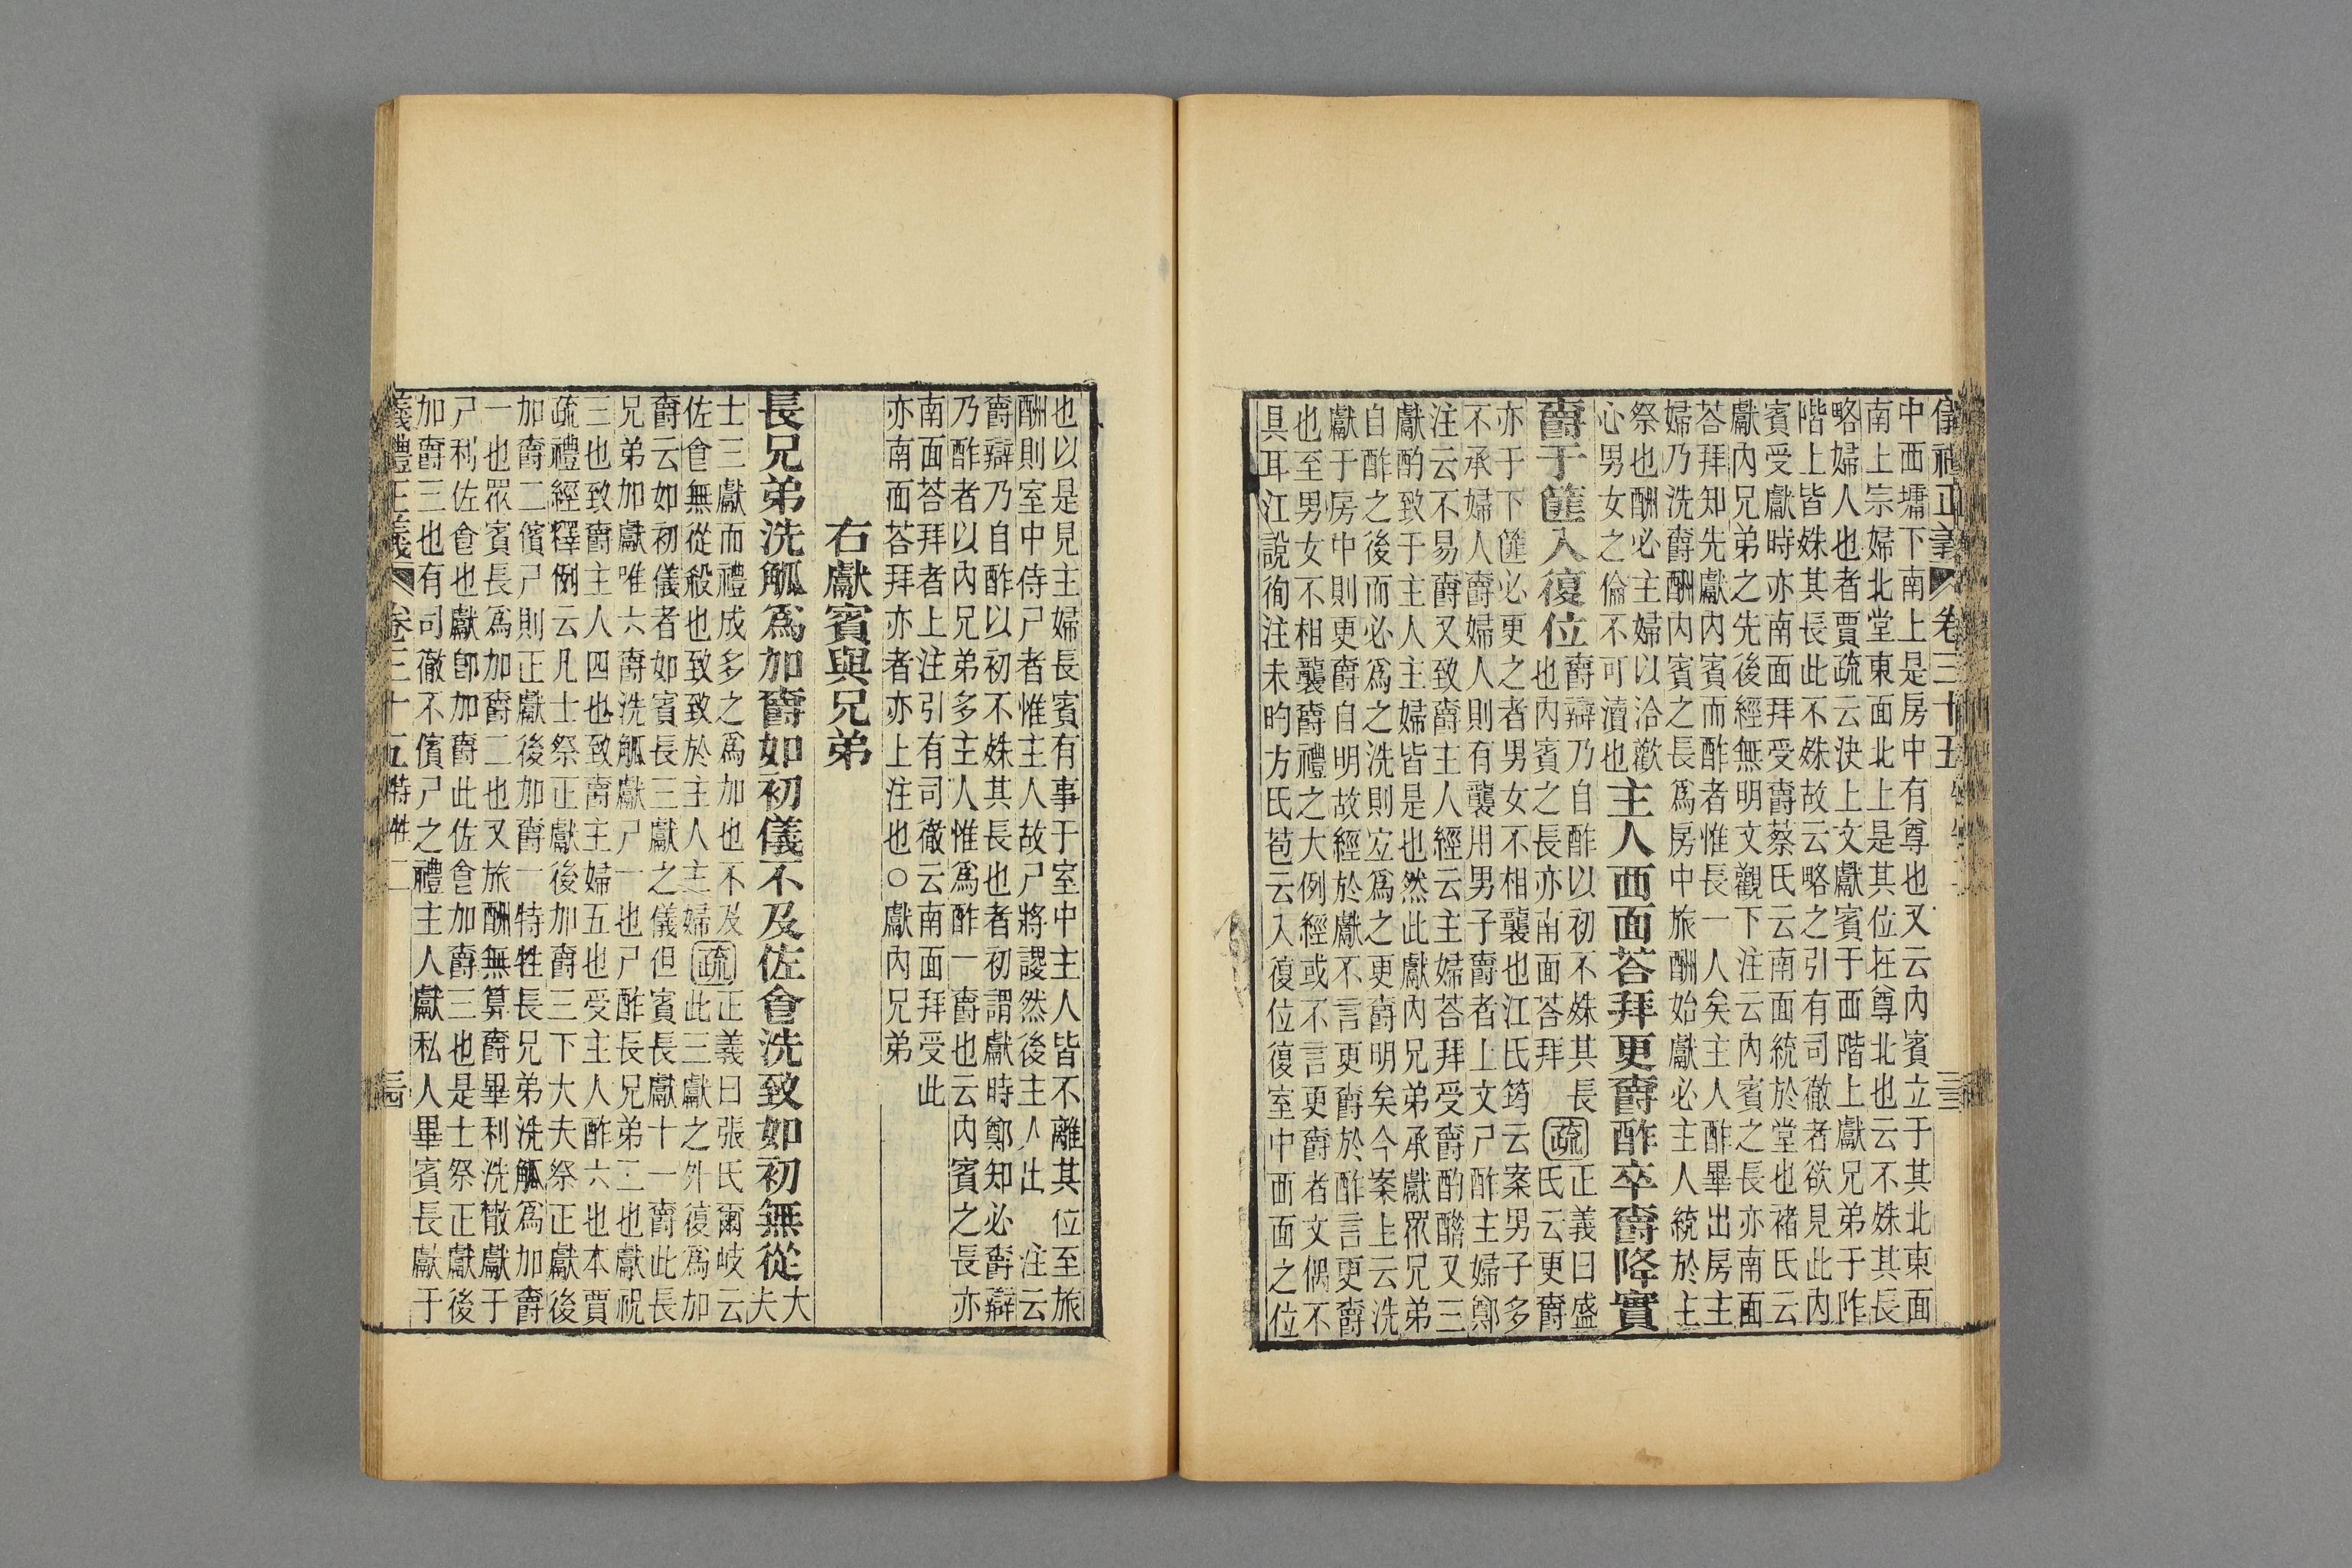 儀禮正義 卷三十五
中西墉下南上是房中有尊也又云內賓立于其北東面
南上宗婦北堂東面北上是其位在尊北也云不殊其長
略婦人也者賈疏云決上文獻賓于西階上獻兄弟于阼
階上皆殊其長此不殊故云略之引有司徹者欲見此內
賓受獻時亦南面拜受爵蔡氏云南面統於堂也褚氏云
獻內兄弟之先後經無明文觀下注云內賓之長亦南面
荅拜知先獻內賓而酢者惟長一人矣主人酢畢出房主
婦乃洗爵酬內賓之長爲房中旅酬始獻必主人統於主
祭也酬必主婦以洽歡
心男女之倫不可瀆也
主人西面荅拜更爵酢卒爵降實
爵于篚入復位
爵辯乃自酢以初不殊其長
也內賓之長亦南面荅拜
疏
正義曰盛
氏云更爵
亦于下篚必更之者男女不相襲也江氏筠云案男子多
不承婦人爵婦人則有襲用男子爵者上文尸酢主婦鄭
注云不易爵又致爵主人經云主婦荅拜受爵酌醋又三
獻酌致于主人主婦皆是也然此獻內兄弟承獻眾兄弟
自酢之後而必爲之洗則宐爲之更爵明矣今案上云洗
獻于房中則更爵自明故經於獻不言更爵於酢言更爵
也至男女不相襲爵禮之大例經或不言更爵者文偶不
具耳江說徇注未的方氏苞云入復位復室中西面之位
也以是見主婦長賓有事于室中主人皆不離其位至旅
酬則室中侍尸者惟主人故尸將謖然後主人出 注云
爵辯乃自酢以初不殊其長也者初謂獻時鄭知必爵辯
乃酢者以內兄弟多主人惟爲酢一爵也云內賓之長亦
南面荅拜者上注引有司徹云南面拜受此
亦南面荅拜亦者亦上注也○獻內兄弟
右獻賓與兄弟
長兄弟洗觚爲加爵如初儀不及佐食洗致如初無從
大
夫
士三獻而禮成多之爲加也不及
佐食無從殺也致致於主人主婦
疏
正義曰張氏爾岐云
此三獻之外復爲加
爵云如初儀者如賓長三獻之儀但賓長獻十一爵此長
兄弟加獻唯六爵洗觚獻尸一也尸酢長兄弟二也獻祝
三也致爵主人四也致爵主婦五也受主人酢六也本賈
疏禮經釋例云凡士祭正獻後加爵三下大夫祭正獻後
加爵二儐尸則正獻後加爵一特牲長兄弟洗觚爲加爵
一也眾賓長爲加爵二也又旅酬無算爵畢利洗散獻于
尸利佐食也獻卽加爵此佐食加爵三也是士祭正獻後
加爵三也有司徹不儐尸之禮主人獻私人畢賓長獻于
儀禮正義 卷三十五 特牲二